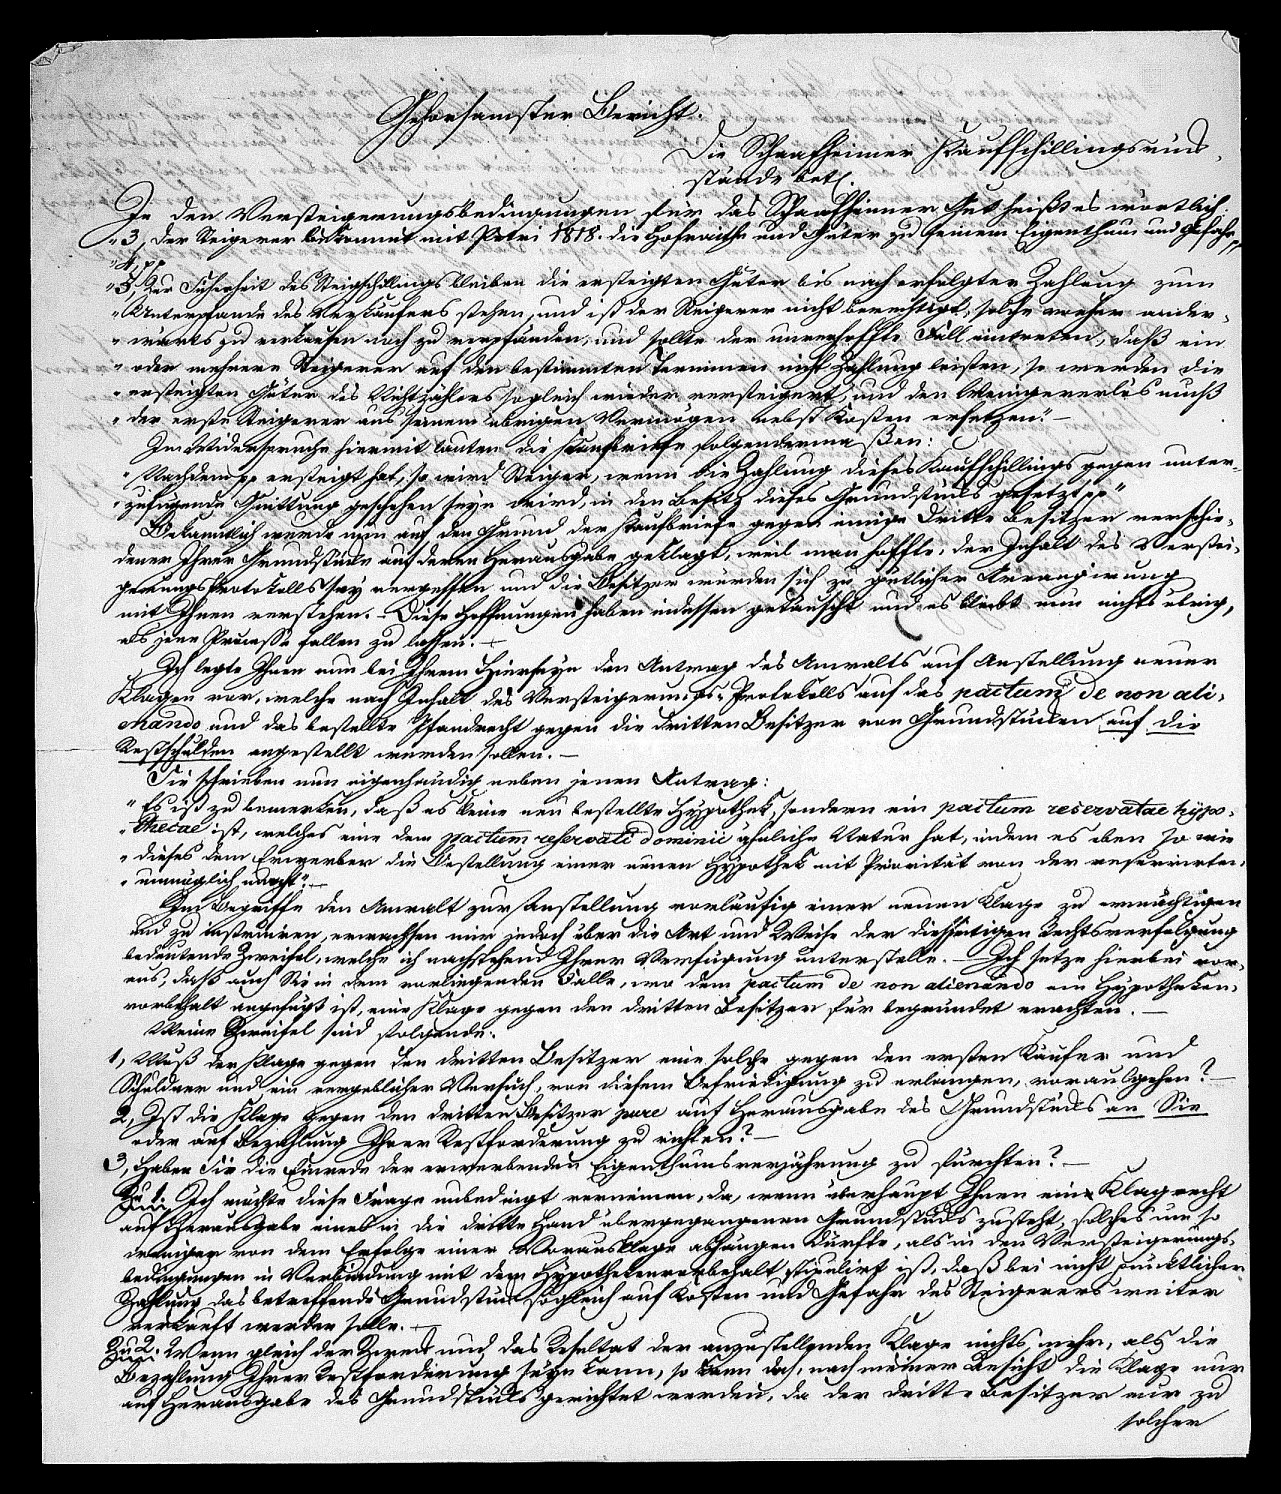 Gehorsamster Bericht.
Die Schaafheimer Kaufschillingsrück-
stände betr.
In den Versteigerungsbedingungen für das Schaafheimer Gut heißt es wörtlich:
"3, Der Steigerer bekommt mit Petri 1818. die Hofraithe und Güter zu seinem Eigenthum und Gefahr pp
"4 pp
"5, Zur Sicherheit des Steigschillings bleiben die ersteigten Güter bis nach erfolgter Zahlung zum
"Unterpfande des Verkäufers stehen, und ist der Steigerer nicht berechtigt, solche vorher ander-
"wärts zu verkaufen noch zu verpfänden, und sollte der unverhoffte Fall eintreten, daß ein
"oder mehrere Steigerer auf den bestimmten Terminen nicht Zahlung leisten, so werden die
"ersteigten Güter des Nichtzahlers sogleich wieder versteigert, und den Wenigererlös muß
"der erste Steigerer aus seinem übrigen Vermögen nebst Kosten ersetzen." —
Im Widerspruche hiermit lauten die Kaufbriefe folgendermaßen:
"Nachdem pp ersteigt hat, so wird Steiger, wenn die Zahlung dieses Kaufschillings gegen unter-
"zufügende Quittung geschehen seyn wird, in den Besitz dieses Grundstücks gesetzt pp"
Bekanntlich wurde nun auf den Grund der Kaufbriefe gegen einige dritte Besitzer verschie-
dener Ihrer Grundstücke auf deren Herausgabe geklagt, weil man hoffte, der Inhalt des Verstei-
gerungsprotokolls sey vergessen und die Besitzer würden sich zu gütlicher Arrangirung
mit Ihnen verstehen. — Diese Hoffnungen haben indessen getäuscht und es bleibt nun nichts übrig,
als jene Processe fallen zu lassen. —
Ich legte Ihnen nun bei Ihrem Hierseyn den Antrag des Anwalts auf Anstellung neuer
Klagen vor, welche nach Inhalt des Versteigerungs-Protokolls auf das pactum de non ali-
enando und das bestellte Pfandrecht gegen die dritten Besitzer von Grundstücken auf die
Restschulden angestellt werden sollen. —
Sie schrieben nun eigenhändig neben jenen Antrag:
"Es ist zu bemerken, daß es keine neu bestellte Hypothek, sondern ein pactum reservatae hypo-
"thecae ist, welches eine dem pactum reservati dominii ähnliche Natur hat, indem es eben so wie
"dieses dem Erwerber die Bestellung einer neuen Hypothek mit Priorität von der reservirten
"unmöglich macht." —
Im Begriffe den Anwalt zur Anstellung vorläufig einer neuen Klage zu ermächtigen
und zu instruiren, erwachsen mir jedoch über die Art und Weise der diesseitigen Rechtsverfolgung
bedeutende Zweifel, welche ich nachstehend Ihrer Verfügung unterstelle. — Ich setze hierbei vor-
aus, daß auch Sie in dem vorliegenden Falle, wo dem pactum de non alienando ein Hypotheken-
vorbehalt angefügt ist, eine Klage gegen den dritten Besitzer für begründet erachten. —
Meine Zweifel sind folgende:
1, Muß der Klage gegen den dritten Besitzer eine solche gegen den ersten Käufer und
Schuldner und ein vergeblicher Versuch, von diesem Befriedigung zu erlangen, vorausgehen? —
2, Ist die Klage gegen den dritten Besitzer pure auf Herausgabe des Grundstücks an Sie
oder auf Bezahlung Ihrer Restforderung zu richten? —
3, Haben Sie die Einrede der erwerbenden Eigenthumsverjährung zu fürchten? —
Zu 1. Ich möchte diese Frage unbedingt verneinen, da, wenn überhaupt Ihnen ein Klagrecht
auf Herausgabe eines in die dritte Hand übergegangenen Grundstücks zusteht, solches um so
weniger von dem Erfolge einer Vorausklage abhängen dürfte, als in den Versteigerungs-
bedingungen in Verbindung mit dem Hypothekenvorbehalt stipulirt ist, daß bei nicht pünktlicher
Zahlung das betreffende Grundstück sogleich auf Kosten und Gefahr des Steigerers weiter
verkauft werden solle. —
Zu 2. Wenn gleich der Zweck und das Resultat der anzustellenden Klage nichts mehr, als die
Bezahlung Ihrer Restforderung seyn kann, so kann doch, nach meiner Ansicht, die Klage nur
auf Herausgabe des Grundstücks gerichtet werden, da der dritte Besitzer nur zu
solcher